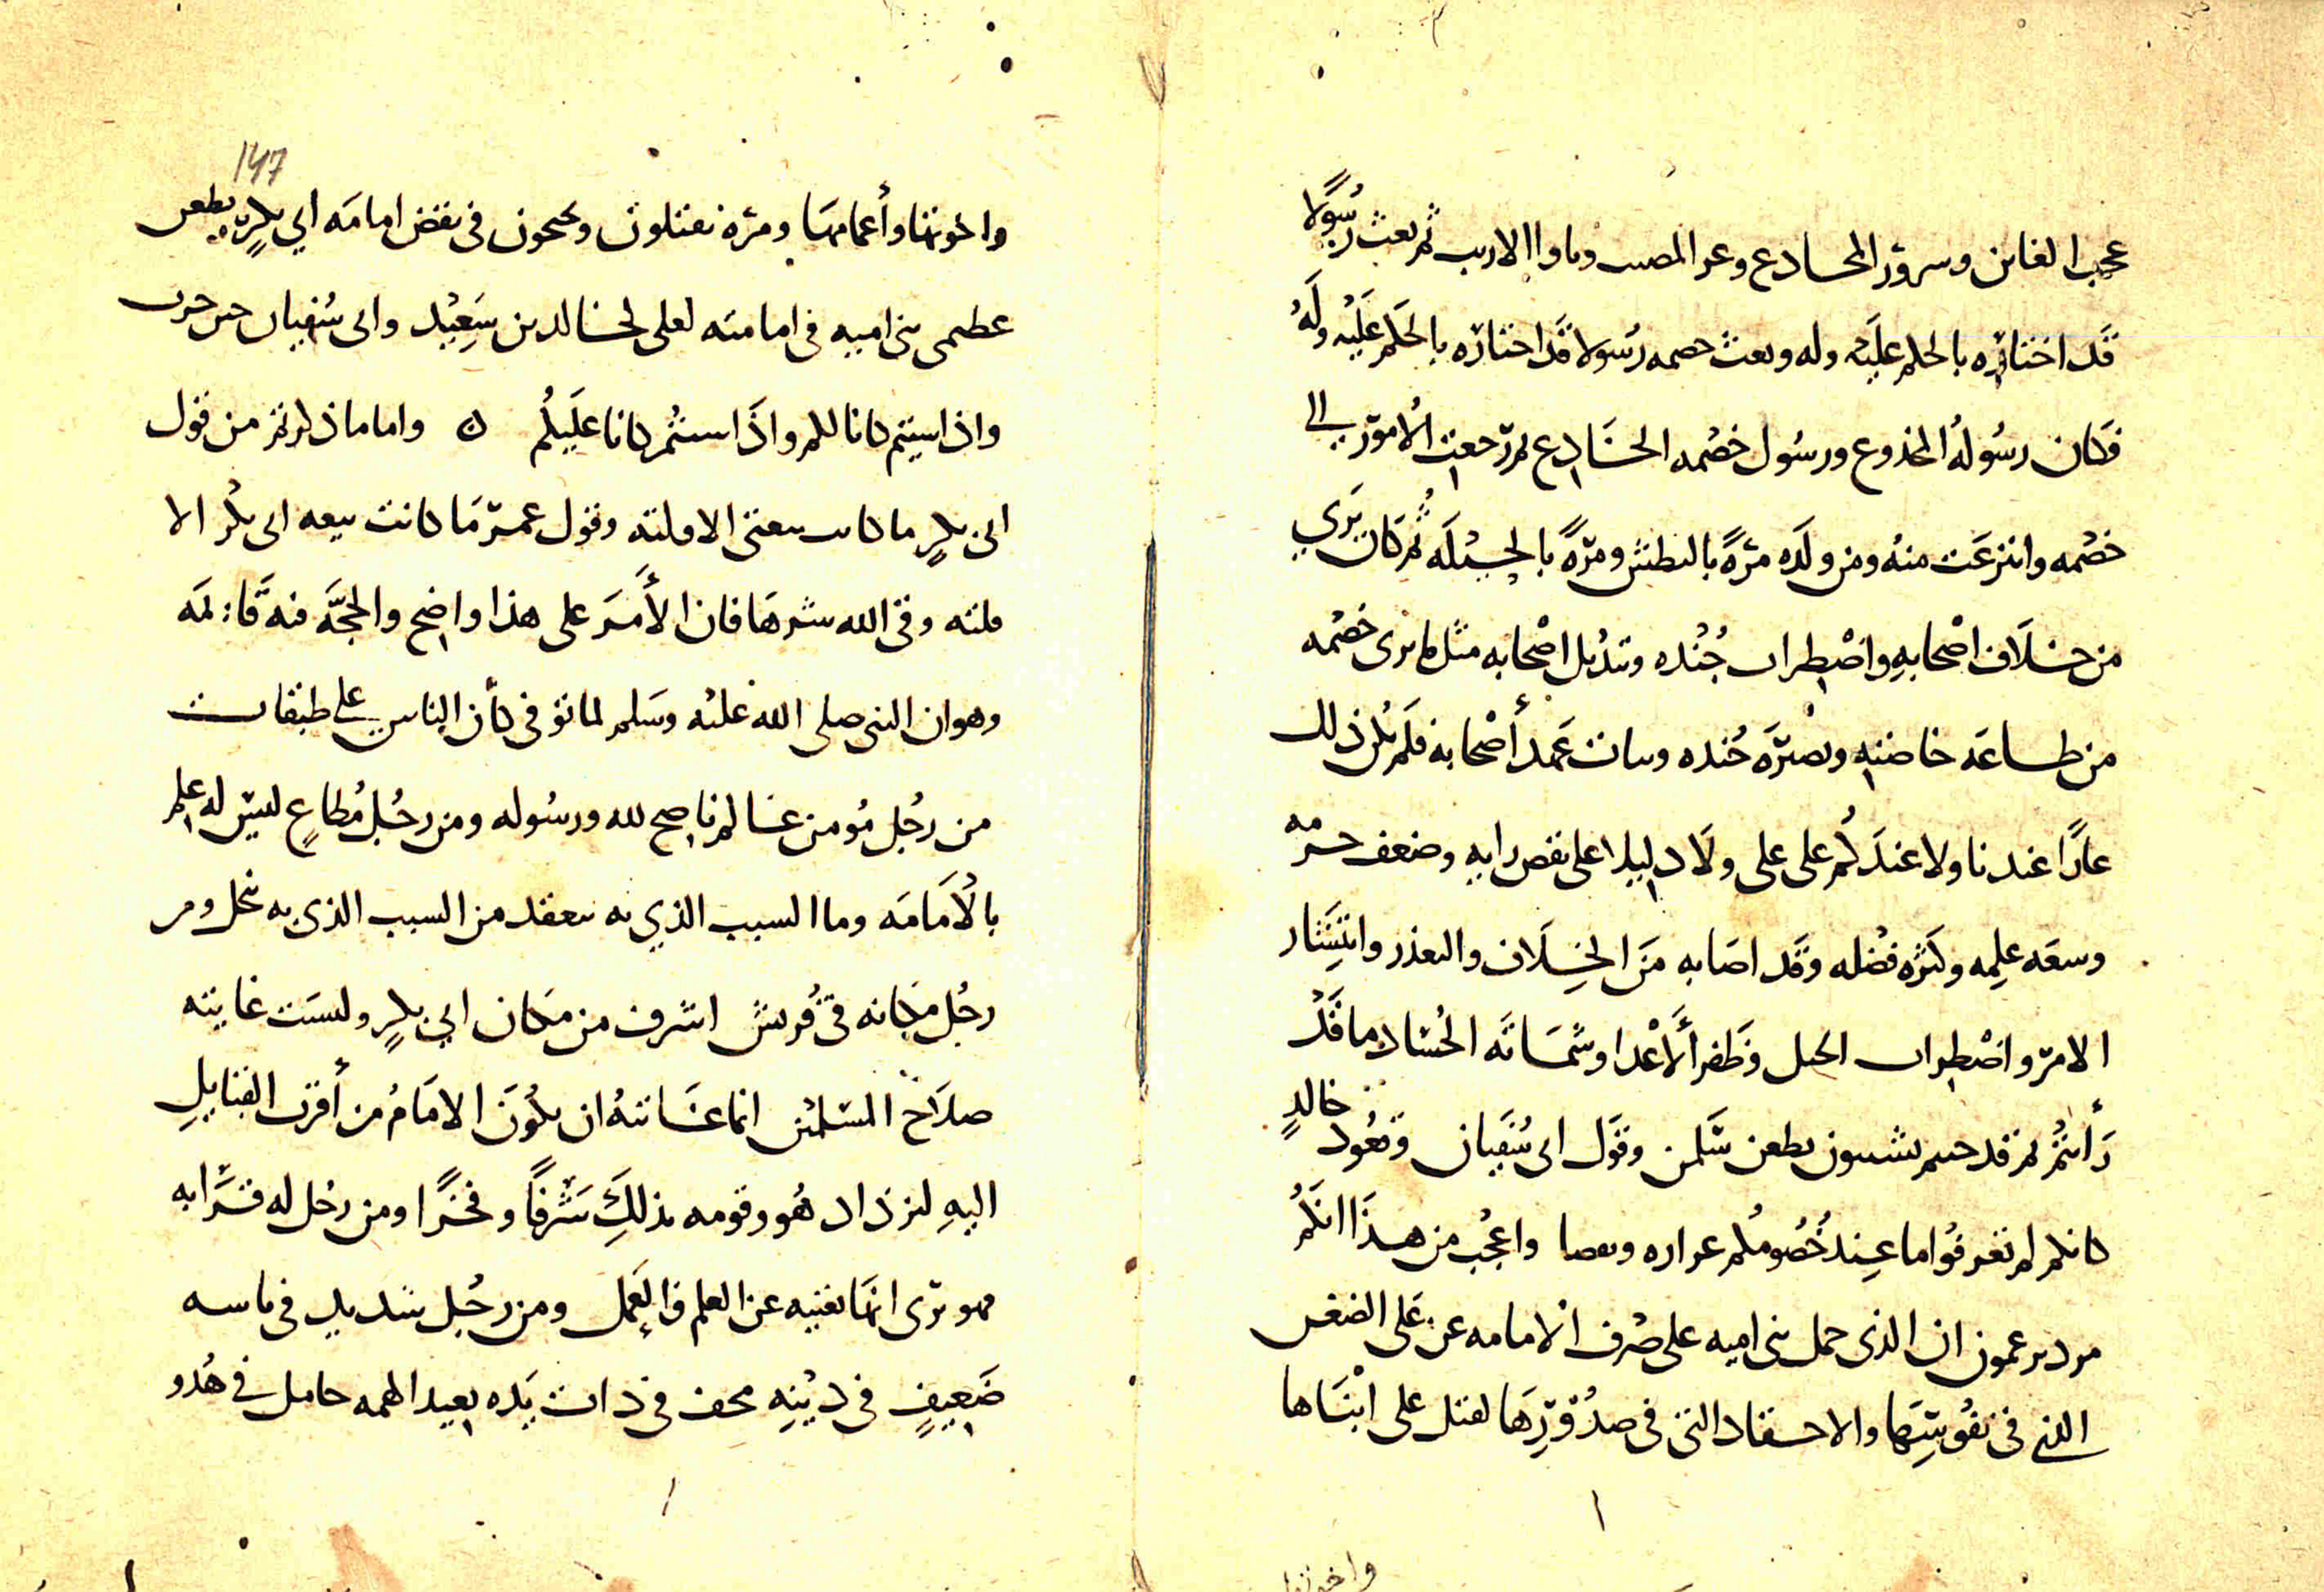 عجب الغابن وسرور المخادع وعز المصيب وباوا الاريب ثم بعث رسولا
قد اختاره بالحكم عليه وله وبعث خصمه رسولا قد اختاره بالحكم عليه وله
فكان رسوله المخدوع ورسول خصمه الخادع ثم رجعت الأمور الي
خصمه وانتزعت منه ومن ولده مرة بالبطش ومرة بالحيلة ثم كان يري
من خلاف اصحابه واضطراب جنده وتبديل اصحابه مثل ما يرى خصمه
من طاعة خاصته ونصرة جنده وثبات عمد أصحابه فلم يكن ذلك
عارا عندنا ولا عندكم على علي ولا دليلا على نقص رايه وضعف حزمه
وسعة علمه وكثرة فضله وقد اصابه من الخذلان والتعذر وانتشار
الامر واضطراب الحبل وظفر ألأعدا وشماتة الحساد ما قد
رأيتم ثم قد جيتم تشنعون بطعن سلمن وقول ابي سفيان وقعود خالد
كانكم لم تعرفوا ما عند خصومكم عرارة ونقصا واعجب من هذا انكم
تزعمون ان الذى حمل بني امية على صرف الامامة عن على الضغن
التي في نفوسها والاحقاد التي في صدورها لقتل على ابناها
واخوتها وأعمامها ومرة تقبلون وتحتجون في نقض امامة ابي بكر بطعن
عظمى بني امية في امامته لعلى لخالد بن سعيد وابى سفيان حين
واذا شيتم كانا لكم واذا شيتم كانا عليكم ۞ واما ما ذكرتم من قول
ابى بكر ما كانت بيعتي الا فلتة وقول عمر ما كانت بيعة ابى بكر الا
فلتة وقى الله شرها فان الأمر على هذا واضح والحجة فيه قائمة
وهو ان النبي صلى الله عليه وسلم لما توفي كأن الناس على طبقات
من رجل مؤمن عالم ناصح لله ورسوله ومن رجل مطاع ليس له علم
بالأمامة وما السبب الذي به تنعقد من السبب الذي به تنحل ومن
رجل مكانه في قريش اشرف من مكان ابي بكر وليست غايته
صلاح المسلمين انما غايته ان يكون الامام من أقرب القبايل
اليه ليزداد هو وقومه بذلك شرفا وفخرا ومن رجل له قرابة
فهو يرى انها تغنيه عن العلم والعمل ومن رجل شديد في باسه
ضعيف في دينه مخف في ذات يده بعيد الهمة خامل في هدو